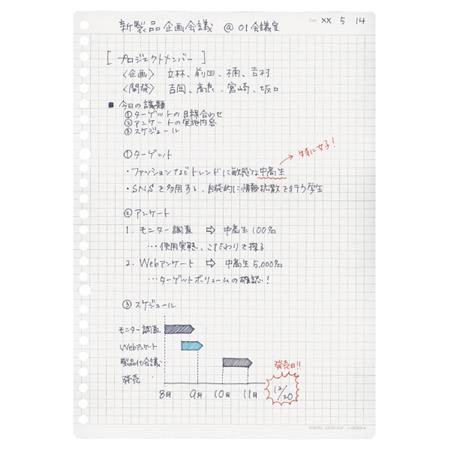 新製品企画会議 @ 01会議室
XX 5 14
[プロジェクトメンバー]
〈企画〉 立林、前田、楠、吉村
〈開発〉 吉岡、高瀬、宮崎、坂口
■ 今日の議題
①ターゲットの目線合わせ
②アンケートの実施内容
③スケジュール
①ターゲット
特に女子!
・ファッションなどトレンドに敏感な中高生
・SNSを多用する、自発的に情報拡散を行う学生
②アンケート
1. モニター調査 ⇨ 中高生100名
…使用実態、こだわりを探る
2. Webアンケート ⇨ 中高生5,000名
…ターゲットボリュームの確認!
③スケジュール
モニター調査
Webアンケート
製品化会議
発売
発売日!!
12/20
8月 9月 10月 11月